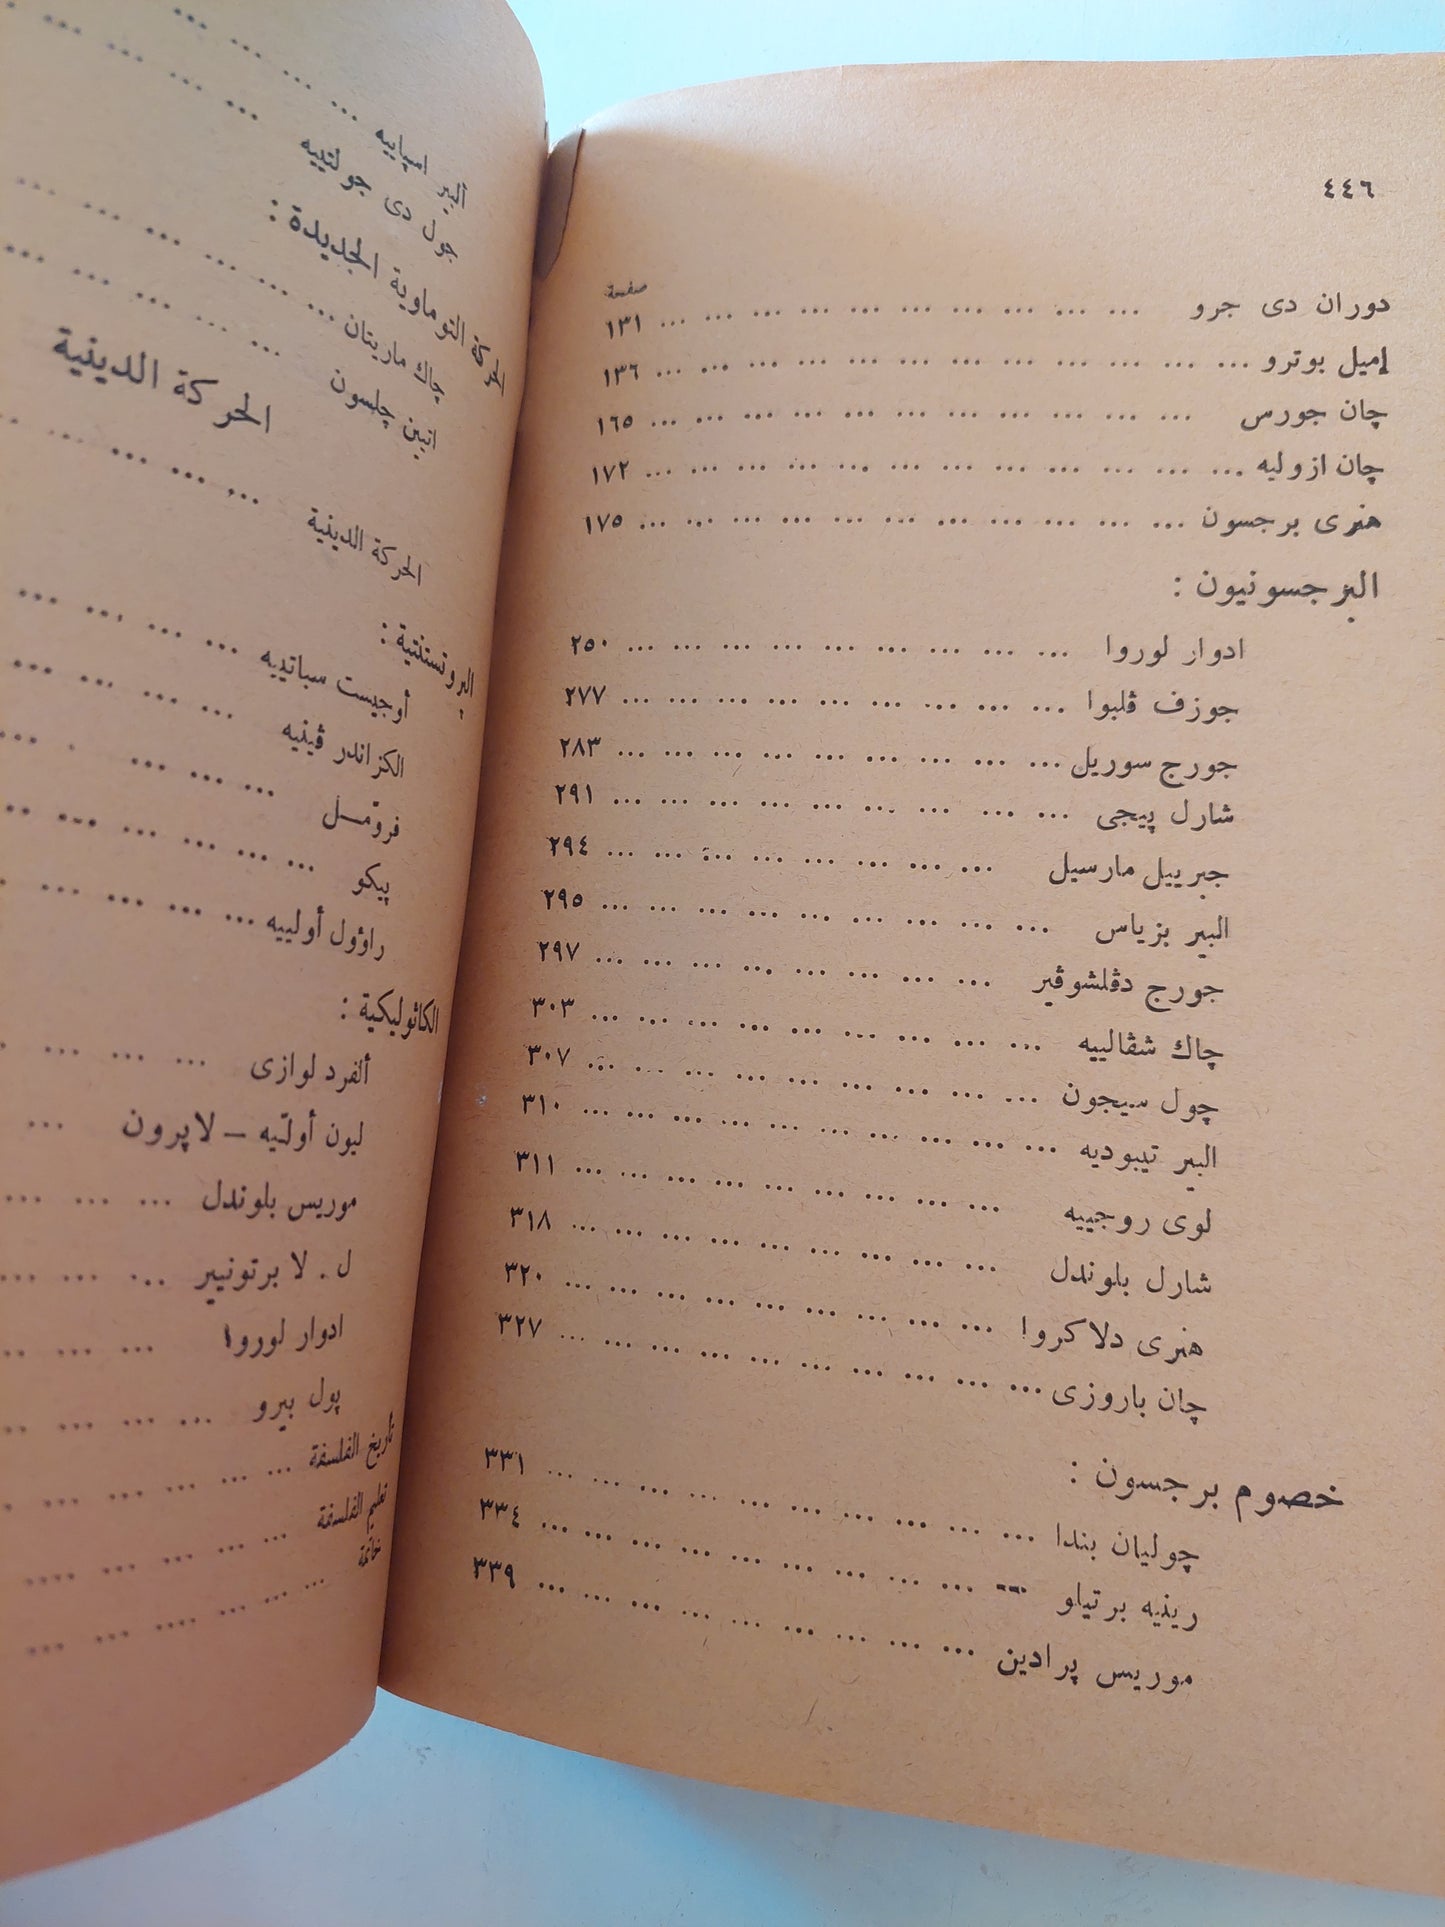 ٤٤٦
صفحة
دوران دى جرو ... ... ... ... ... ... ... ... ... ... ١٣١
إميل بوترو ... ... ... ... ... ... ... ... ... ... ... ... ١٣٦
چان جورس ... ... ... ... ... ... ... ... ... ... ... ١٦٥
چان ازوليه ... ... ... ... ... ... ... ... ... ... ... ... ١٧٢
هنرى برجسون ... ... ... ... ... ... ... ... ... ... ... ١٧٥
البرجسونيون :
ادوار لوروا ... ... ... ... ... ... ... ... ... ٢٥٠
جوزف ڤلبوا ... ... ... ... ... ... ... ... ... ٢٧٧
جورج سوريل ... ... ... ... ... ... ... ... ... ٢٨٣
شارل پيجى ... ... ... ... ... ... ... ... ... ٢٩١
جبرييل مارسيل ... ... ... ... ... ... ... ... ٢٩٤
البير بزياس ... ... ... ... ... ... ... ... ... ٢٩٥
جورج دڤلشوڤير ... ... ... ... ... ... ... ... ٢٩٧
چاك شڤالييه ... ... ... ... ... ... ... ... ... ٣٠٣
چول سيجون ... ... ... ... ... ... ... ... ... ٣٠٧
البير تيبوديه ... ... ... ... ... ... ... ... ... ... ٣١٠
لوى روجييه ... ... ... ... ... ... ... ... ... ٣١١
شارل بلوندل ... ... ... ... ... ... ... ... ... ٣١٨
هنرى دلاكروا ... ... ... ... ... ... ... ... ... ٣٢٠
چان باروزى ... ... ... ... ... ... ... ... ... ... ٣٢٧
خصوم برجسون :
چوليان بندا ... ... ... ... ... ... ... ... ... ... ٣٣١
رينيه برتيلو ... ... ... ... ... ... ... ... ... ... ٣٣٤
موريس پرادين ... ... ... ... ... ... ... ... ... ٣٣٩
البير امپاييه ... ... ... ...
جول دى جولتييه ... ... ... ... ...
الحركة التوماوية الجديدة :
چاك ماريتان ... ... ... ... ... ...
اتيين چلسون ... ... ... ... ...
الحركة الدينية
الحركة الدينية ... ... ... ... ...
البروتستنتية :
أوجيست سباتييه ... ... ... ...
الكزاندر ڤينيه ... ... ... ...
فرومل ... ... ...
پيكو ... ... ... ... ... ...
راؤول أولييه ... ... ... ... ...
الكاثوليكية :
ألفرد لوازى ... ... ... ...
ليون أولّيه – لاپرون ...
موريس بلوندل ... ... ...
ل . لا برتونيير ... ... ... ...
ادوار لوروا ... ... ... ...
پول بيرو ... ... ... ...
تأريخ الفلسفة ... ... ... ... ... ...
تعليم الفلسفة ... ... ... ... ...
خاتمة ... ... ... ... ... ...